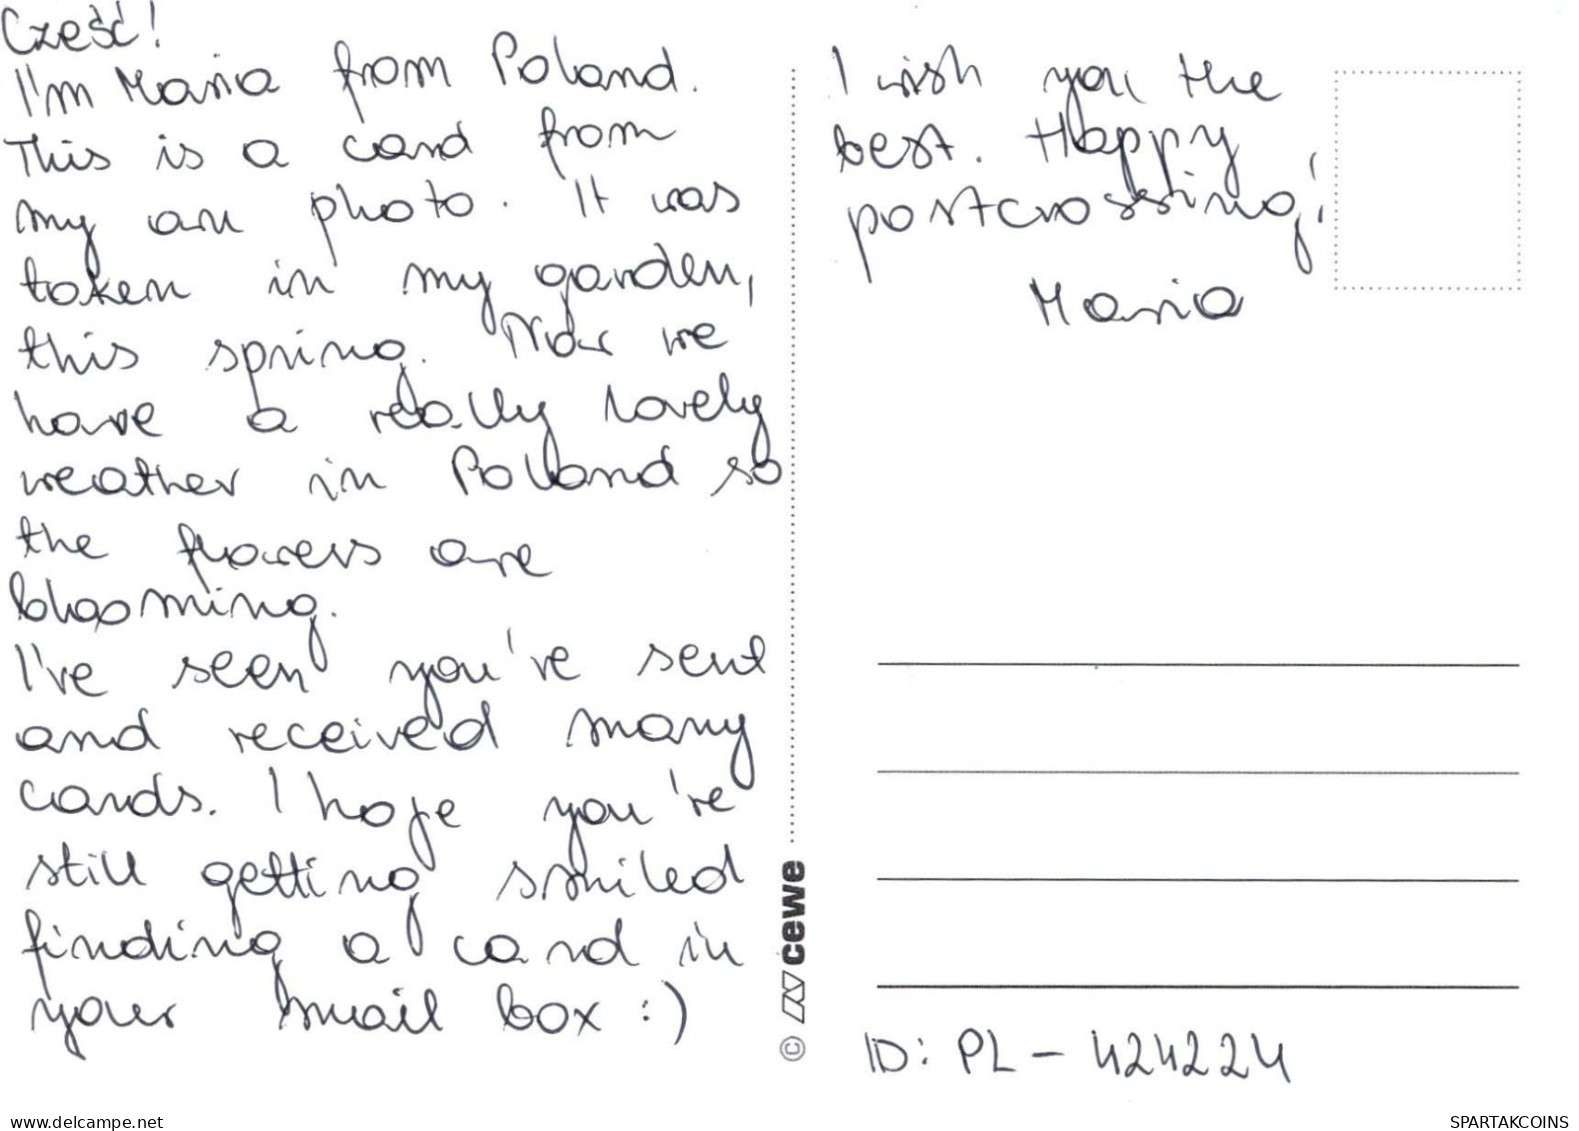 Cześć!
I'm Maria from Poland.
This is a card from
my own photo. It was
taken in my garden,
this spring. Now we
have a really lovely
weather in Poland so
the flowers are
blooming.
I've seen you've sent
and received many
cards. I hope you're
still getting smiled
finding a card in
your mail box :)
I wish you the
best. Happy
postcrossing!
Maria
© cewe
ID: PL - 424224
www.delcampe.net
SPARTAKCOINS